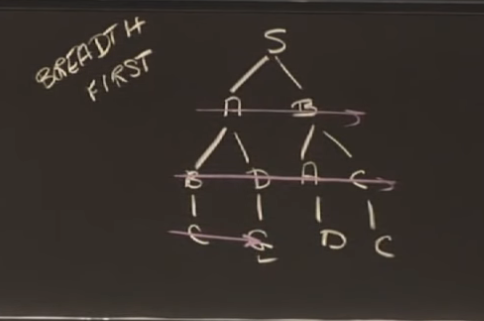 BREADTH
FIRST
S
A B
B D A C
C G D C